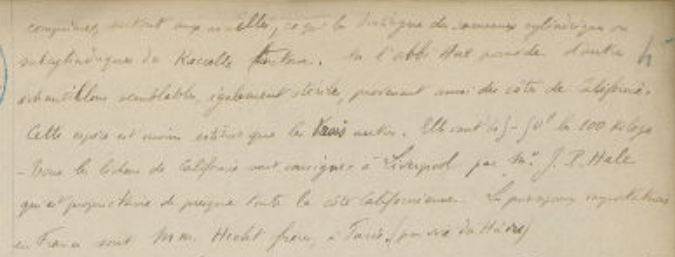 comprimés, surtout aux aisselles, ce qui le distingue des rameaux cylindriques ou
subcylindriques du Roccella tinctoria. M. l'abbé Hue possède d'autres
échantillons semblables, également stériles, provenant aussi des côtes de Californie.
Cette espèce est moins estimée que les trois autres. Elle vaut les 100 kilogs
- Tous les lichens de Californie sont consignés à Liverpool par Mr. J. P. Hale
qui est propriétaire de presque toute la côte Californienne. Les principaux importateurs
en France sont M.M. Hecht frères, à Paris. (par voie du Hâvre)